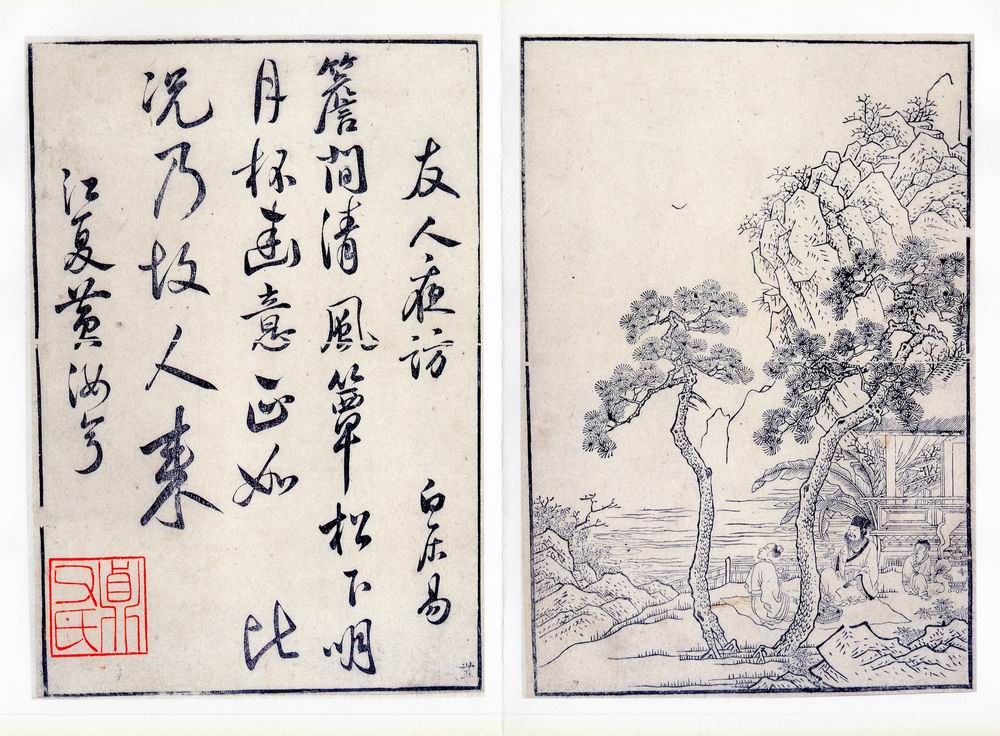 友人夜訪 白居易
簷間清風簟松下明
月杯幽意正如此
況乃故人來
江夏黃汝亨